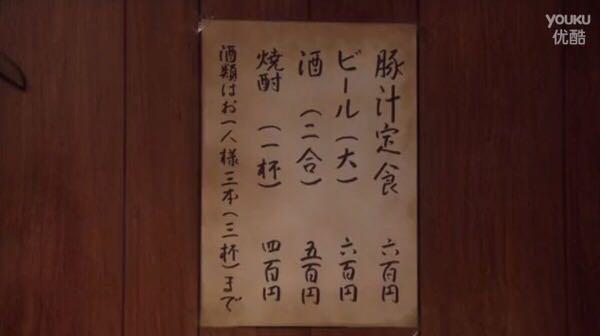 豚汁定食 六百円
ビール(大) 六百円
酒(二合) 五百円
焼酎(一杯) 四百円
酒類はお一人様三本(三杯)まで
YOUKU
优酷